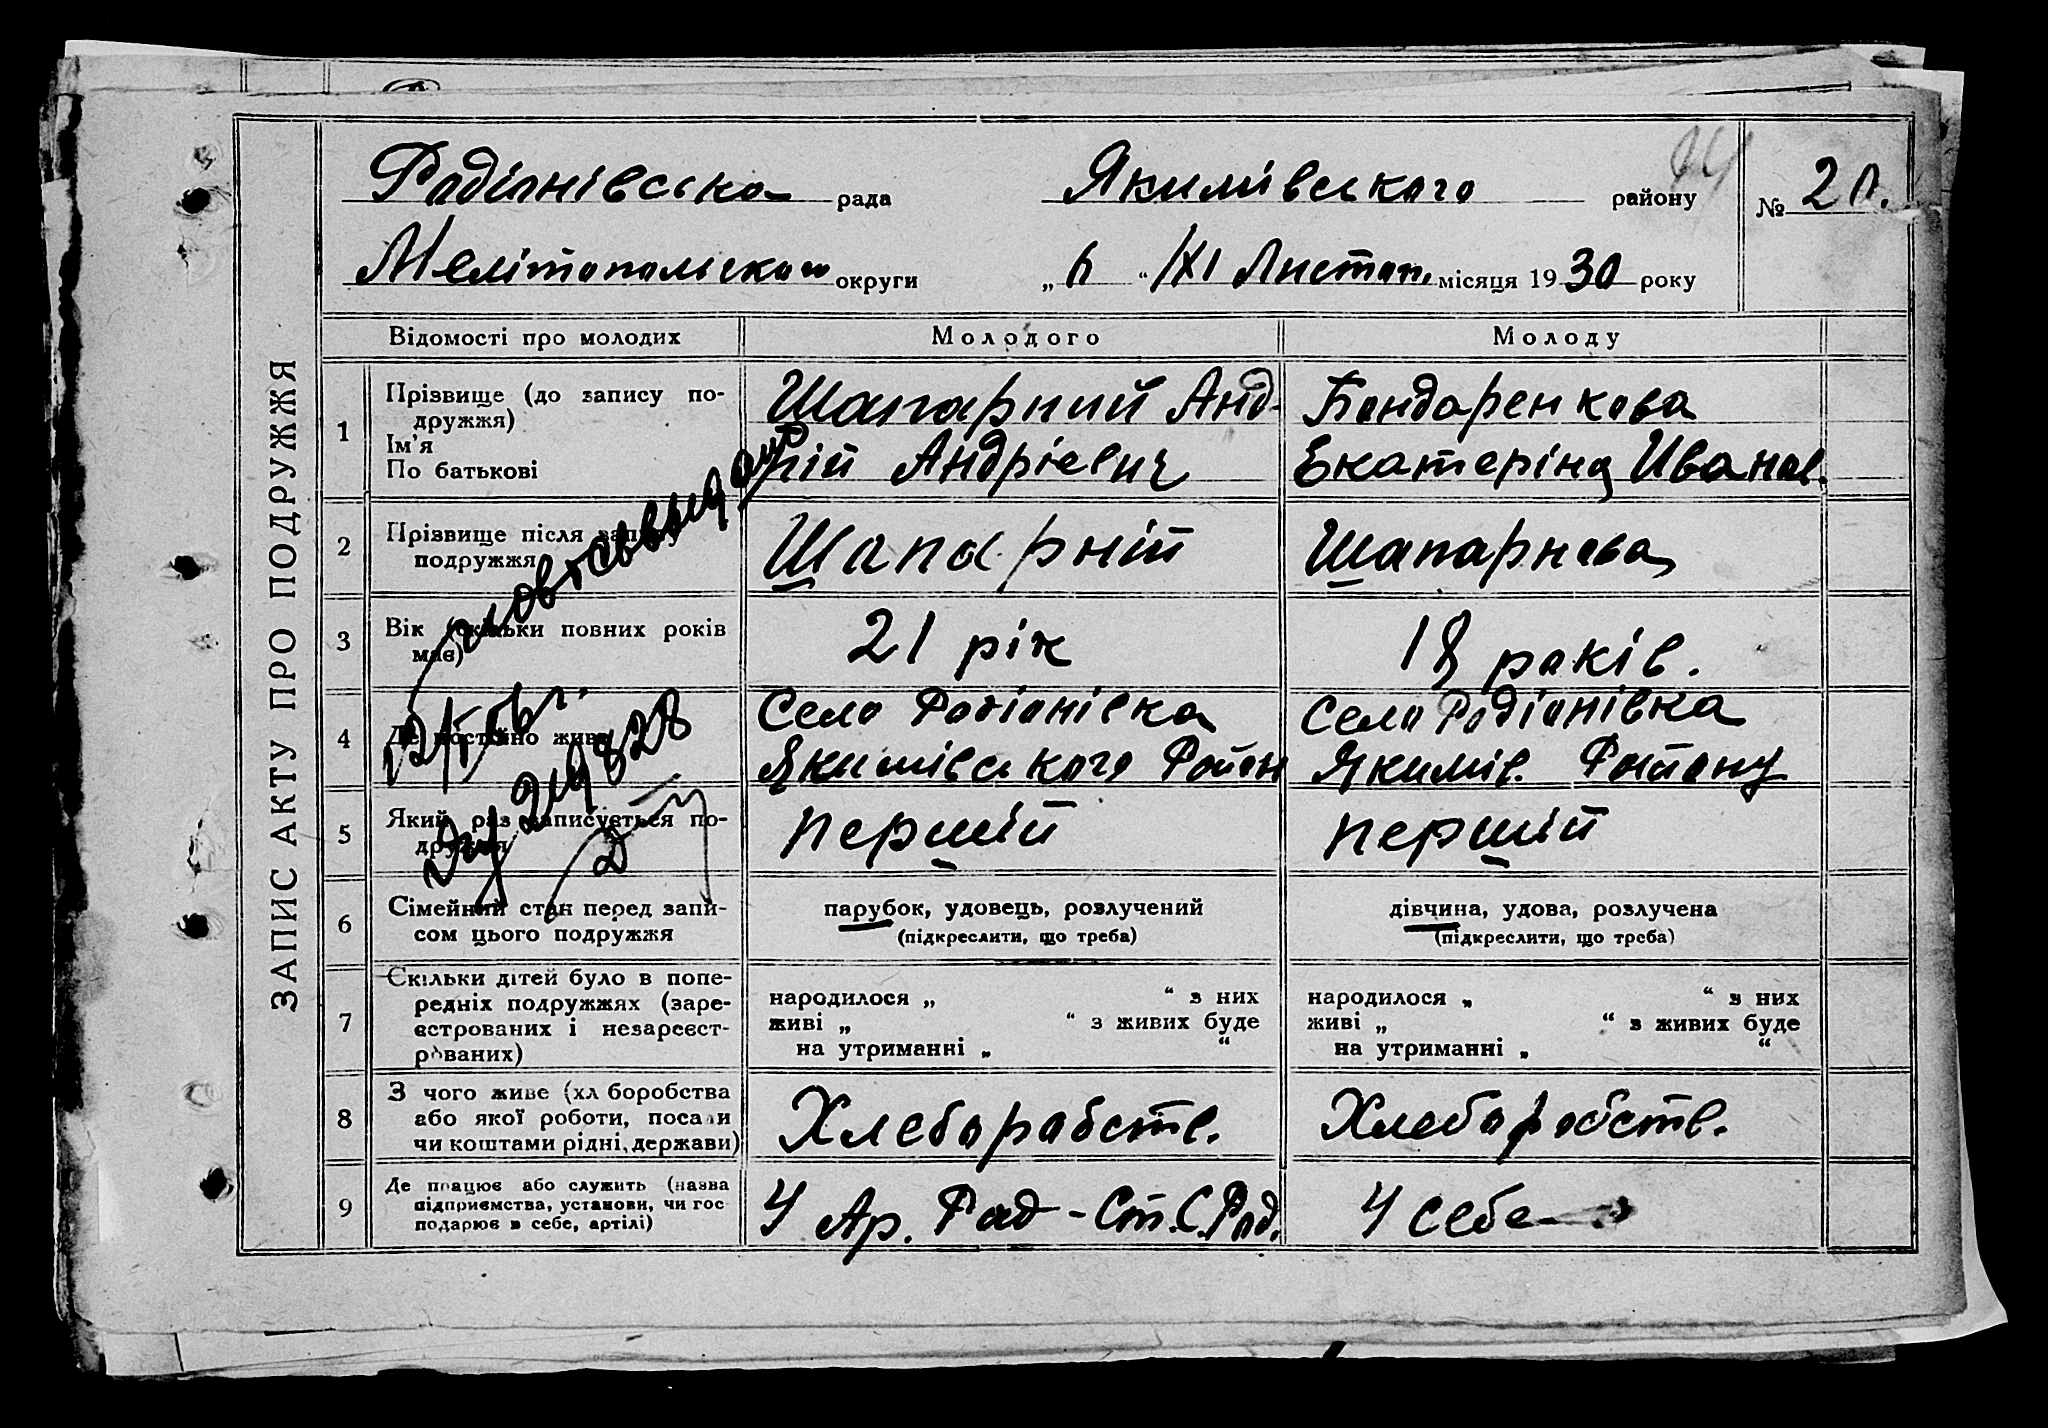 Радіонівська рада Якимівського району № 20.
Мелітопольского округи „ 6 “ /XI Листоп. місяця 1930 року
ЗАПИС АКТУ ПРО ПОДРУЖЖЯ
Відомості про молодих Молодого Молоду
1 Прізвище (до запису по-
дружжя)
Ім’я
По батькові
Шапарний Анд-
рій Андріевич
Бондаренкова
Екатеріна Иванов.
2 Прізвище після запису
подружжя
Шапарній
Шапарнева
3 Вік (скільки повних років
має)
21 рік
18 років.
4 Де постійно живе
Село Родіонівка
Якимівського Район
Село Родіонівка
Якимів. Району
5 Який раз записується по-
дружжя
першій
першій
6 Сімейний стан перед запи-
сом цього подружжя
парубок, удовець, розлучений
(підкреслити, що треба)
дівчина, удова, розлучена
(підкреслити, що треба)
7 Скільки дітей було в попе-
редніх подружжях (заре-
єстрованих і незареєст-
рованих)
народилося „ “ з них
живі „ “ з живих буде
на утриманні „ “
народилося „ “ з них
живі „ “ з живих буде
на утриманні „ “
8 З чого живе (хліборобства
або якої роботи, посади
чи коштами рідні, держави)
Хлеборабств.
Хлеборобств.
9 Де працює або служить (назва
підприємства, установи, чи гос
подарює в себе, артілі)
У Ар. Рад-Ст. С. Род.
У себе